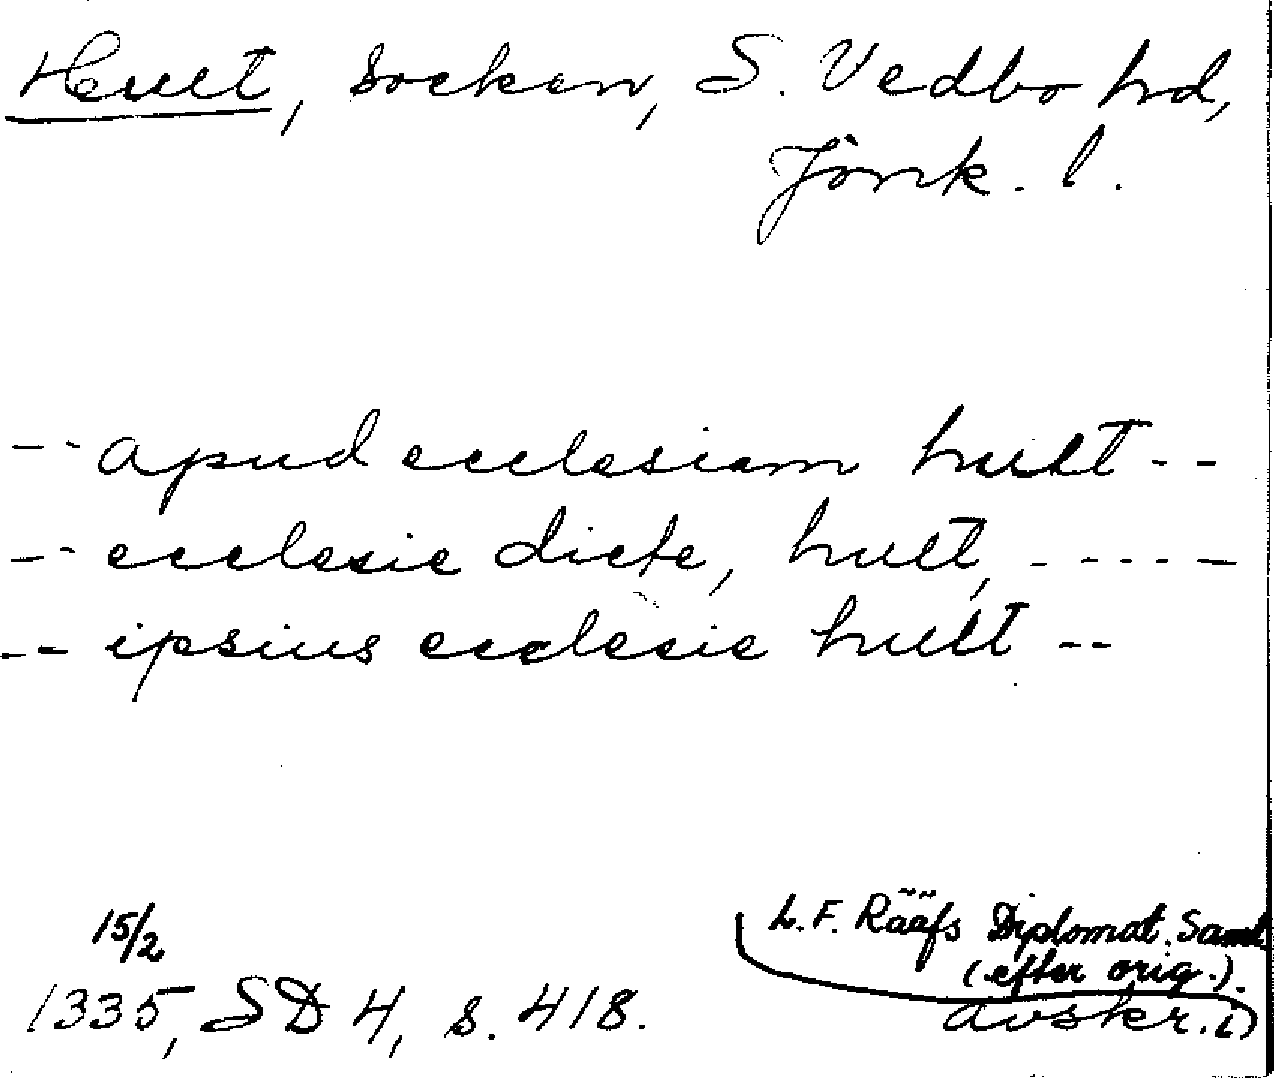 Hult, socken, S. Vedbo hd,
Jönk. l.
-- apud ecclesiam hult --
-- ecclesie dicte, hult, -----
-- ipsius ecclesie hult --
15/2
1335, SD 4, s. 418.
L. F. Rääfs Diplomat. Saml
(efter orig.).
avskr. i)